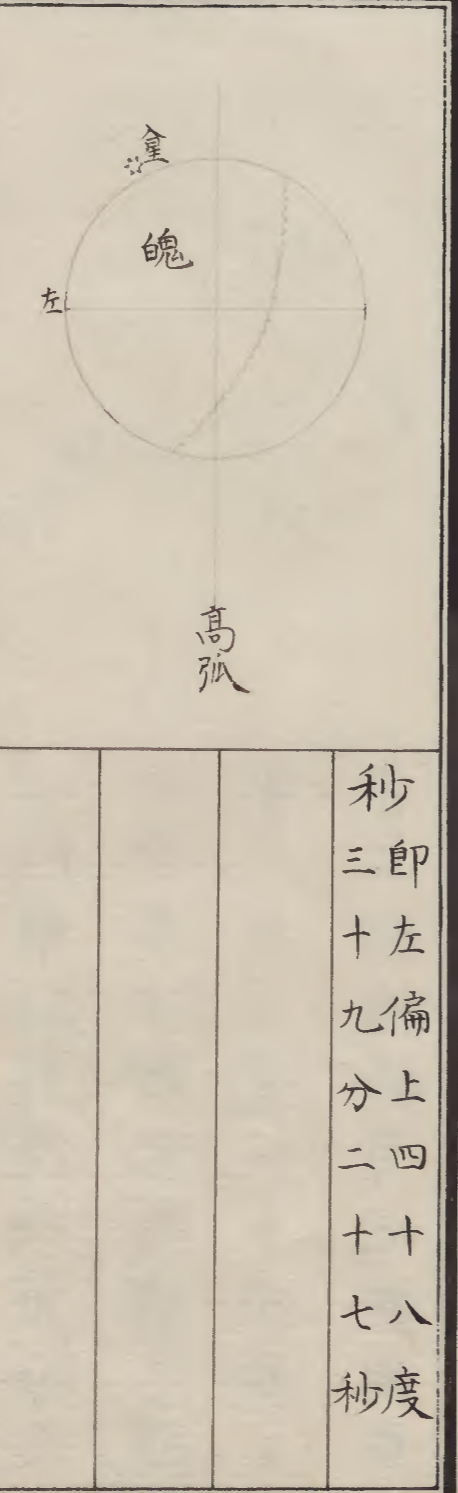 星
魄
左
高弧
秒
即左偏上四十八度
三十九分二十七秒